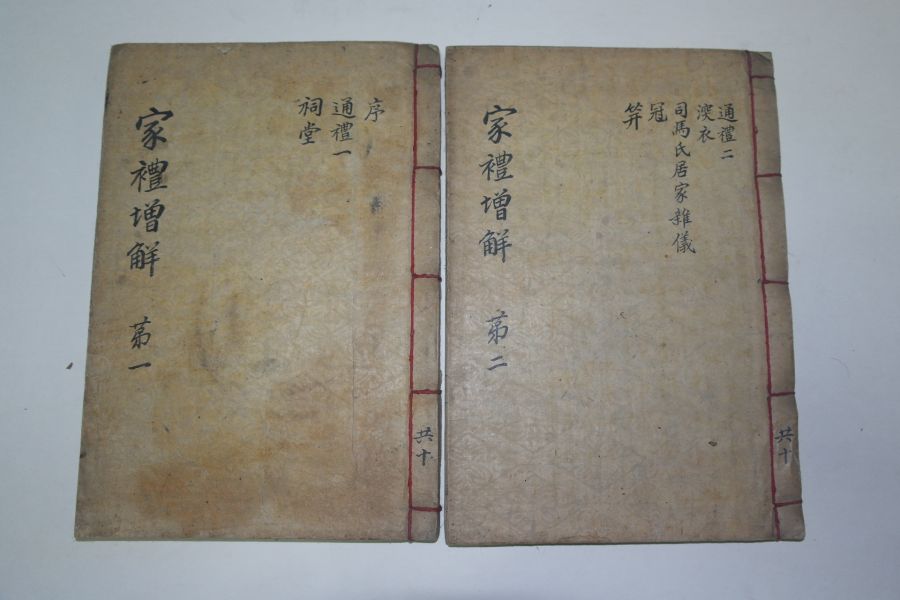 序
通禮一
祠堂
家禮增觧
苐一
共十
通禮二
深衣
司馬氏居家雜儀
冠
笄
家禮增觧
苐二
共十